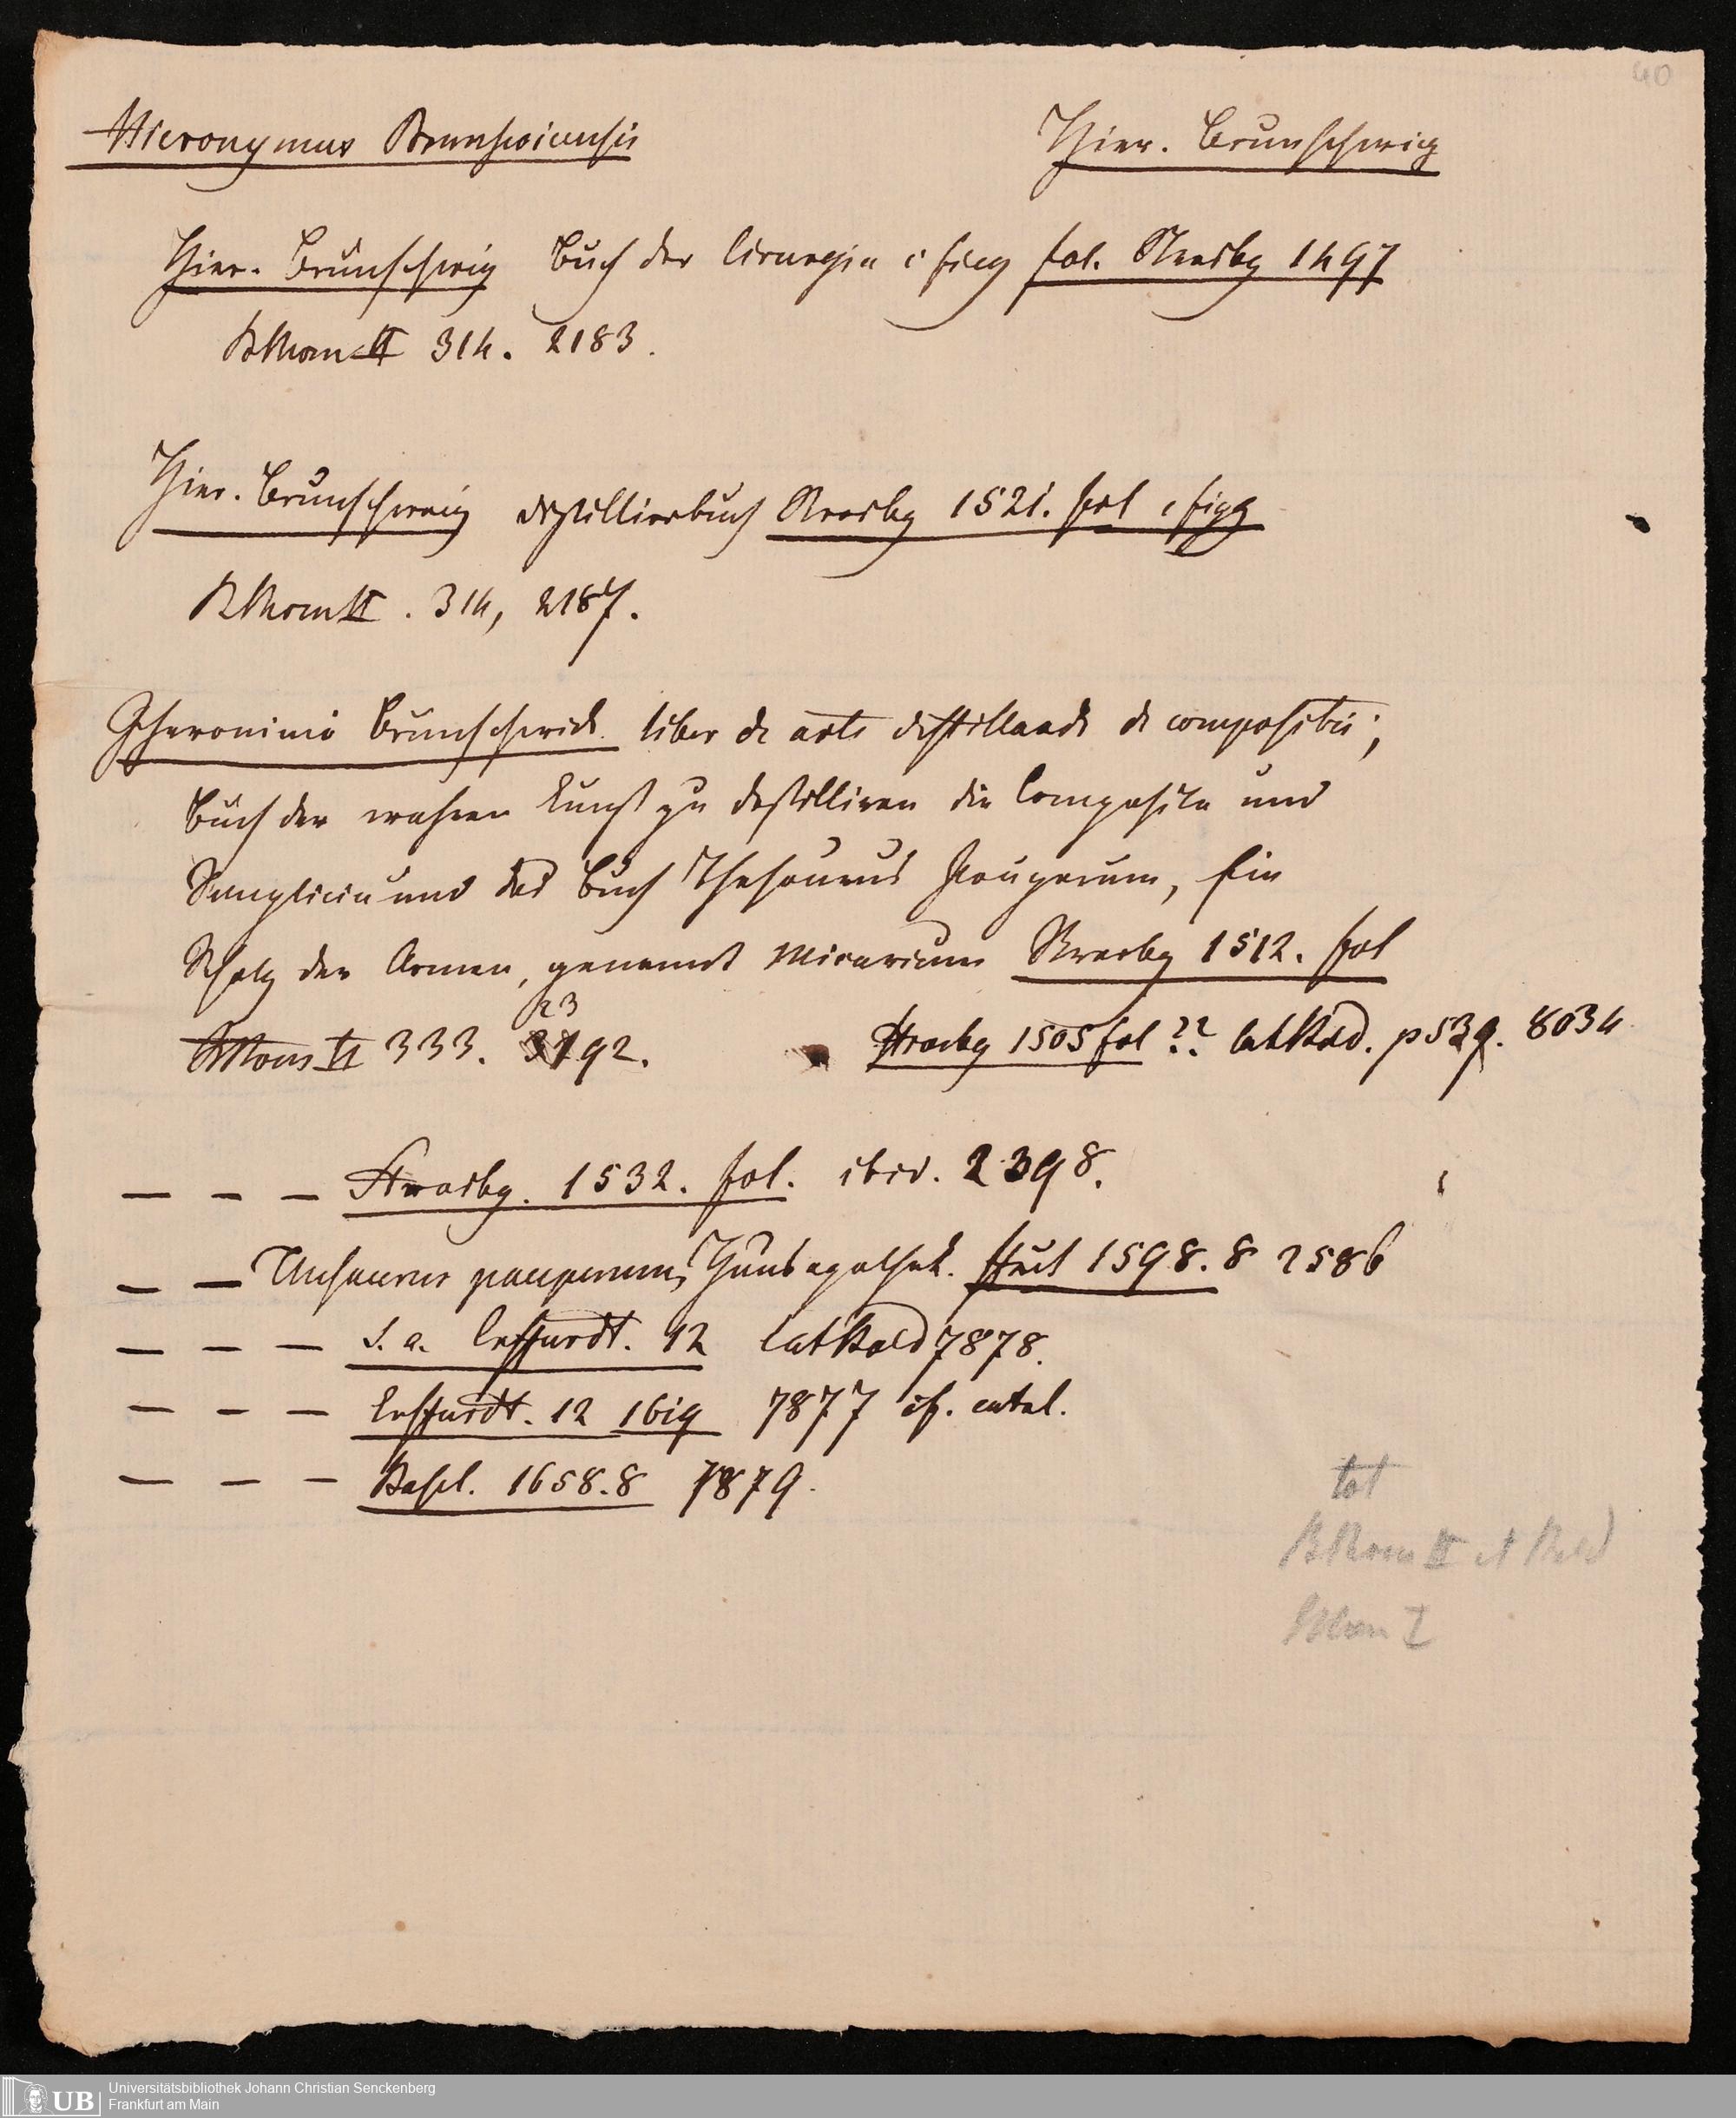 40
Hieronymus Brunswicensis Hier. Brunschwig
Hier. Brunschwig Buch der Cirurgia c figg fol. Strasbg 1497
BThom II 314. 2183.
Hier. Brunschweig destillierbuch Strasbg 1521. fol c figg
BThom II. 314, 2187.
Jheronimi Brunschwick liber de arte distillandi de compositis;
Buch der wahren Kunst zu destilliren die Composita und
Simplicia und das Buch Thesaurus Pauperum, Ein
Schatz der Armen, genannt Micarium Strasbg 1512. fol
BThom II 333. 2392. Strasbg 1505 fol ?? catBald. p 539. 8034
— — — Strasbg. 1532. fol. ibid. 2398.
— — Thesaurus pauperum, Hausapothek. ffurt 1598. 8 2586
— — — s. a. Erffurdt. 12 catBald 7878.
— — — Erffurdt. 12 1619 7877 cf. catal.
— — — Basel. 1658. 8 7879.
tot
BThom II et Bald
BThom I
UB Universitätsbibliothek Johann Christian Senckenberg
Frankfurt am Main